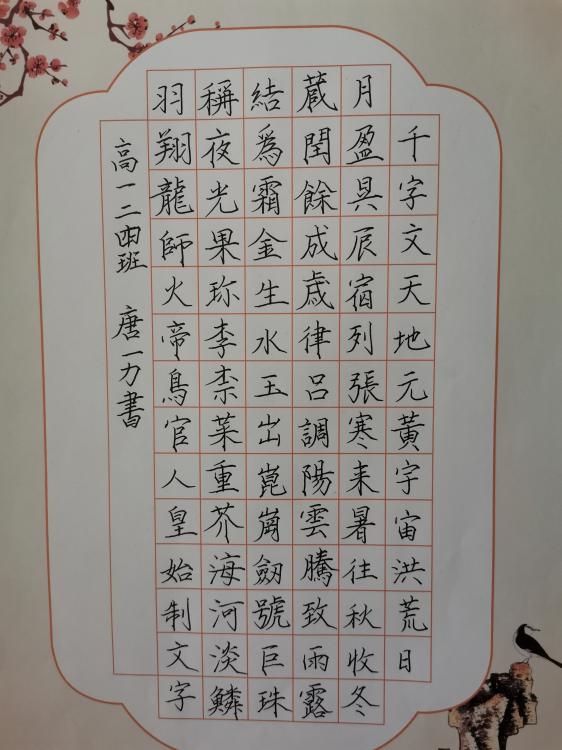 千字文天地元黃宇宙洪荒日
月盈昃辰宿列張寒来暑往秋收冬
蔵閏餘成歳律呂調陽雲騰致雨露
結爲霜金生水玉出崑崗劒號巨珠
稱夜光果珎李柰菜重芥海河淡鱗
羽翔龍師火帝鳥官人皇始制文字
高一二四班 唐一力書